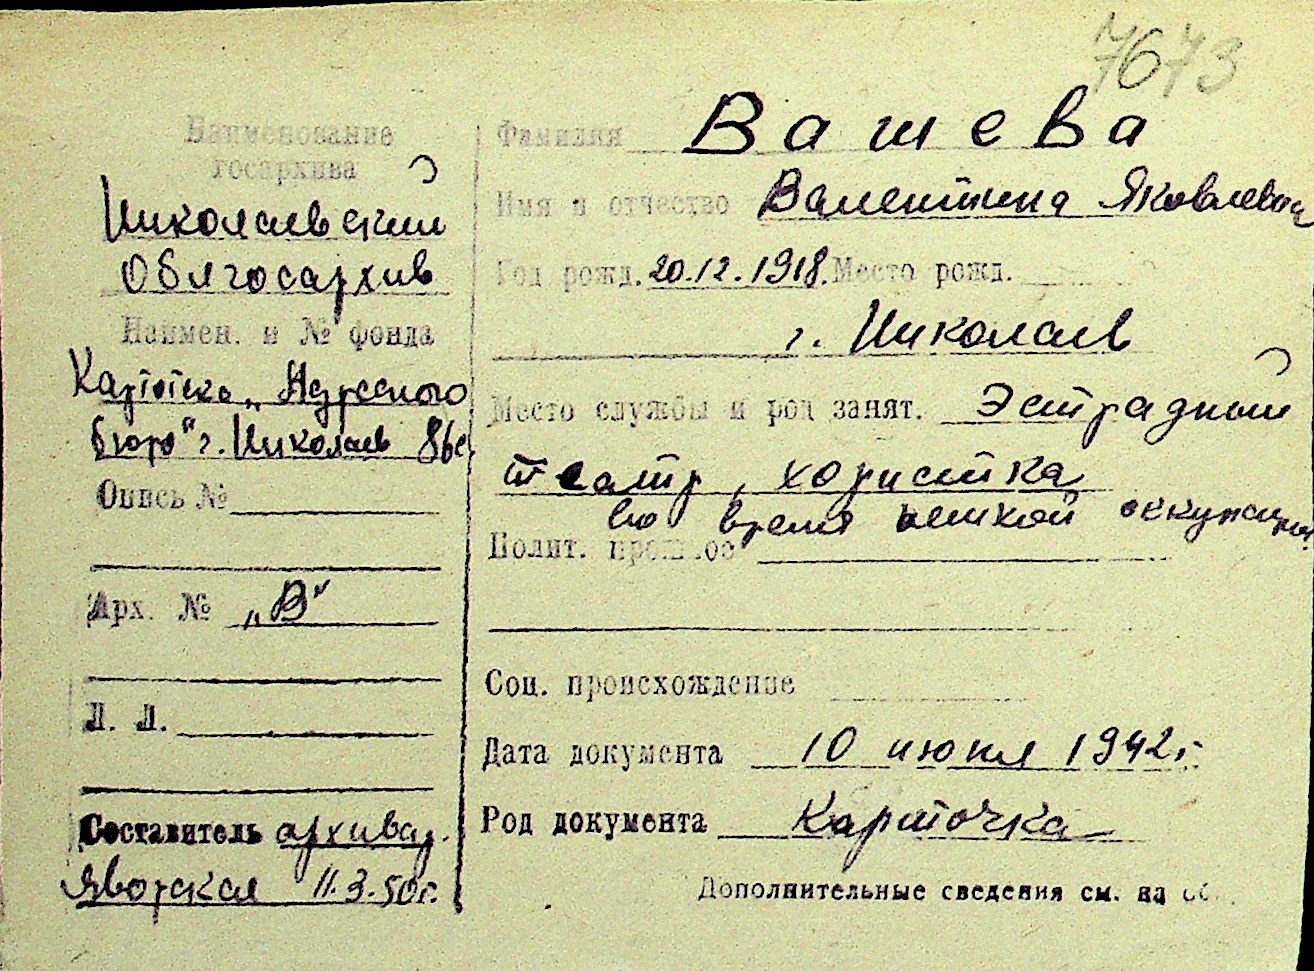 7673
Наименование
госархива
Николаевский
Облгосархив
Наимен. и № фонда
Картотека „Адресного
бюро“ г. Николаев
Опись №
Арх. № „В“
Л. Л.
Составитель архивар.
Яворская 11.3.50г.
Фамилия Вашева
Имя и отчество Валентина Яковлевна
Год рожд. 20.12.1918. Место рожд.
г. Николаев
Место службы и род занят. Эстрадный
театр, хористка
во время немкой оккупации
Полит.
Соц. происхождение
Дата документа 10 июня 1942г.
Род документа Карточка
Дополнительные сведения см. на об